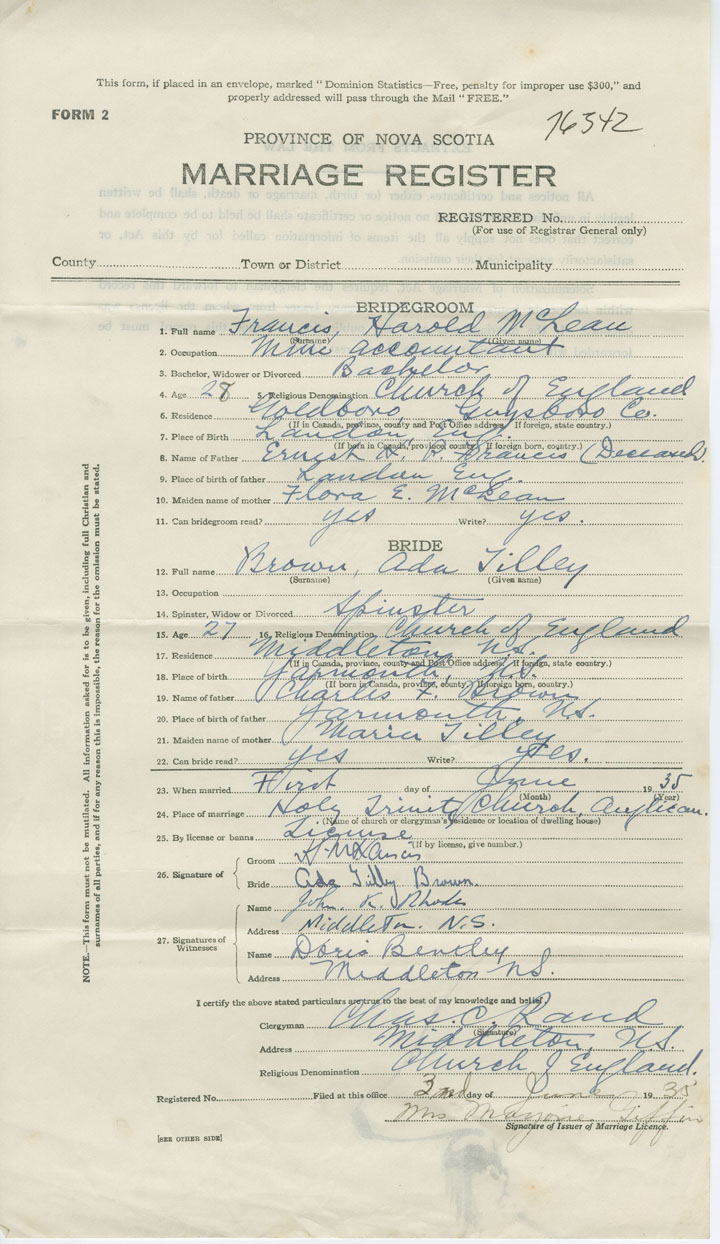 This form, if placed in an envelope, marked "Dominion Statistics—Free, penalty for improper use $300," and
properly addressed will pass through the Mail "FREE."
FORM 2
76342
PROVINCE OF NOVA SCOTIA
MARRIAGE REGISTER
REGISTERED No.
(For use of Registrar General only)
County Town or District Municipality
BRIDEGROOM
1. Full name Francis, Harold McLean
(Surname) (Given name)
2. Occupation Mine accountant
3. Bachelor, Widower or Divorced Bachelor
4. Age 28 5. Religious Denomination Church of England
6. Residence Goldboro, Guysboro Co.
(If in Canada, province, county and Post Office address. If foreign, state country.)
7. Place of Birth London, Eng.
(If born in Canada, province, county. If foreign born, country.)
8. Name of Father Ernest H. Francis (Deceased)
9. Place of birth of father London Eng.
10. Maiden name of mother Flora E. McLean
11. Can bridegroom read? yes Write? yes.
BRIDE
12. Full name Brown, Ada Tilley
(Surname) (Given name)
13. Occupation
14. Spinster, Widow or Divorced Spinster
15. Age 27 16. Religious Denomination Church of England
17. Residence Middleton, N.S.
(If in Canada, province, county and Post Office address. If foreign, state country.)
18. Place of birth Yarmouth, N.S.
(If born in Canada, province, county. If foreign born, country.)
19. Name of father Charles F. Brown
20. Place of birth of father Yarmouth, N.S.
21. Maiden name of mother Maria Tilley
22. Can bride read? yes Write? yes.
23. When married First day of June 1935
(Month) (Year)
24. Place of marriage Holy Trinity Church, Anglican.
(Name of church or clergyman's residence or location of dwelling house)
25. By license or banns License
(If by license, give number.)
26. Signature of
Groom
Bride Ada Tilley Brown.
27. Signatures of Witnesses
Name John K. Rhodes
Address Middleton. N.S.
Name Doris Bentley
Address Middleton N.S.
I certify the above stated particulars are true to the best of my knowledge and belief,
Clergyman Chas. C. Rand
(Signature)
Address Middleton, N.S.
Religious Denomination Church of England.
Registered No. Filed at this office 3rd day of June 1935
Mrs Tiffin
Signature of Issuer of Marriage Licence.
[SEE OTHER SIDE]
NOTE.—This form must not be mutilated. All information asked for is to be given, including full Christian and
surnames of all parties, and if for any reason this is impossible, the reason for the omission must be stated.